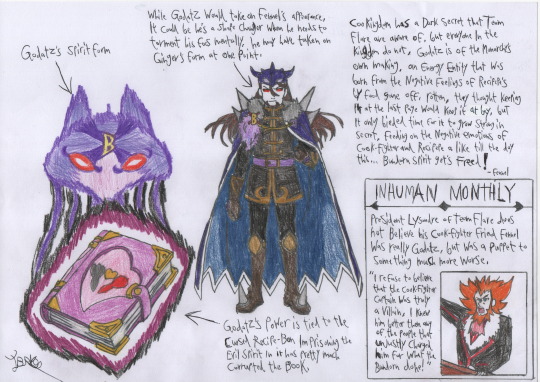 While Godatz Would take on Fennel's appearance,
It Could be he's a Shape Changer Who he needs to
torment his foes mentally. he may have taken on
Ginger's Form at one Point.
Godatz's Spirit form
CooKingdom has a Dark Secret that Team
Flare are aware of, but everyone In the
Kingdom do not, Godatz is of the Monarch's
own making, an Energy Entity that Was
born from the Negative Feelings of
food gone off, rotten, they thought Keeping
It at the last page Would Keep it at bay, but
It only bided time for it to grow Strong in
Secret, Feeding on the Negative emotions of
Cook-Fighter and Recipe a like till the day
this... Bandern Spirit get's Freed!
-Fennel
B
B
INHUMAN MONTHLY
President Lysandre of Team Flare does
not Believe his Cook-Fighter Friend Fennel
Was really Godatz, but Was a Puppet to
Something Much More Worse.
"I refuse to believe
that the Cook-Fighter
Captain Was truly
a Villain, I Knew
him better then any
of the People that
unjustly Charged
him for What the
Bandern did!"
Godatz's Power is tied to the
Cursed Recipe-Bon Imprisoning the
Evil Spirit in it has pretty Much
Corrupted the Book.